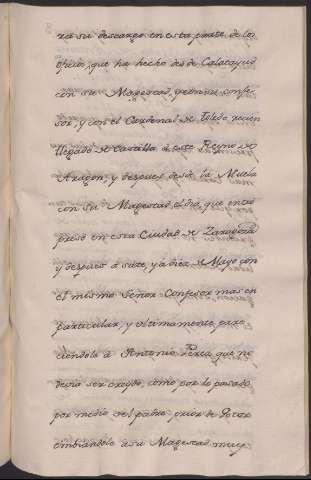 ra su descargo en esta parte de los
oficios, que ha hecho desde Calatayud
con su Magestad, premise confe-
sor, y con el Cardenal de Toledo, recien
llegado de Castilla à este Reyno de
Aragon; y despues desde la Muela
con Su Magestad, el dia, que entrò
preso en esta Ciudad de Zaragoza
y despues à siete, y à diez de Mayo con
el mismo Señor Confesor mas en
particular, y ultimamente pare-
ciendole à Antonio Perez, que no
devia ser creydo, como por lo pasado,
por medio del padre prior de Gotor
embiandole à su Magestad muy